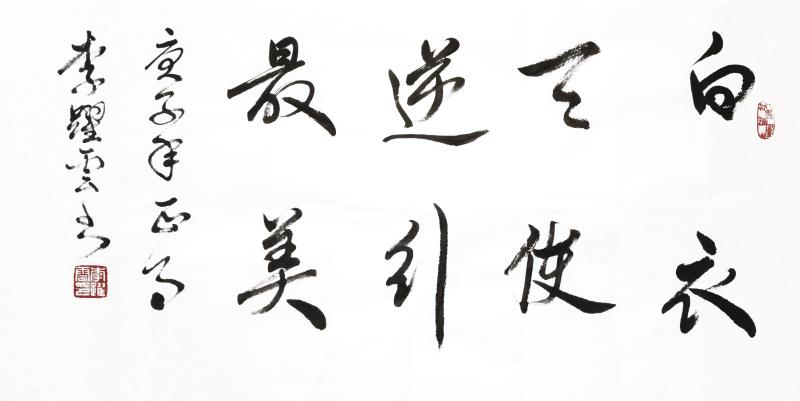 白衣
天使
逆行
最美
庚子年正月
李躍雲书